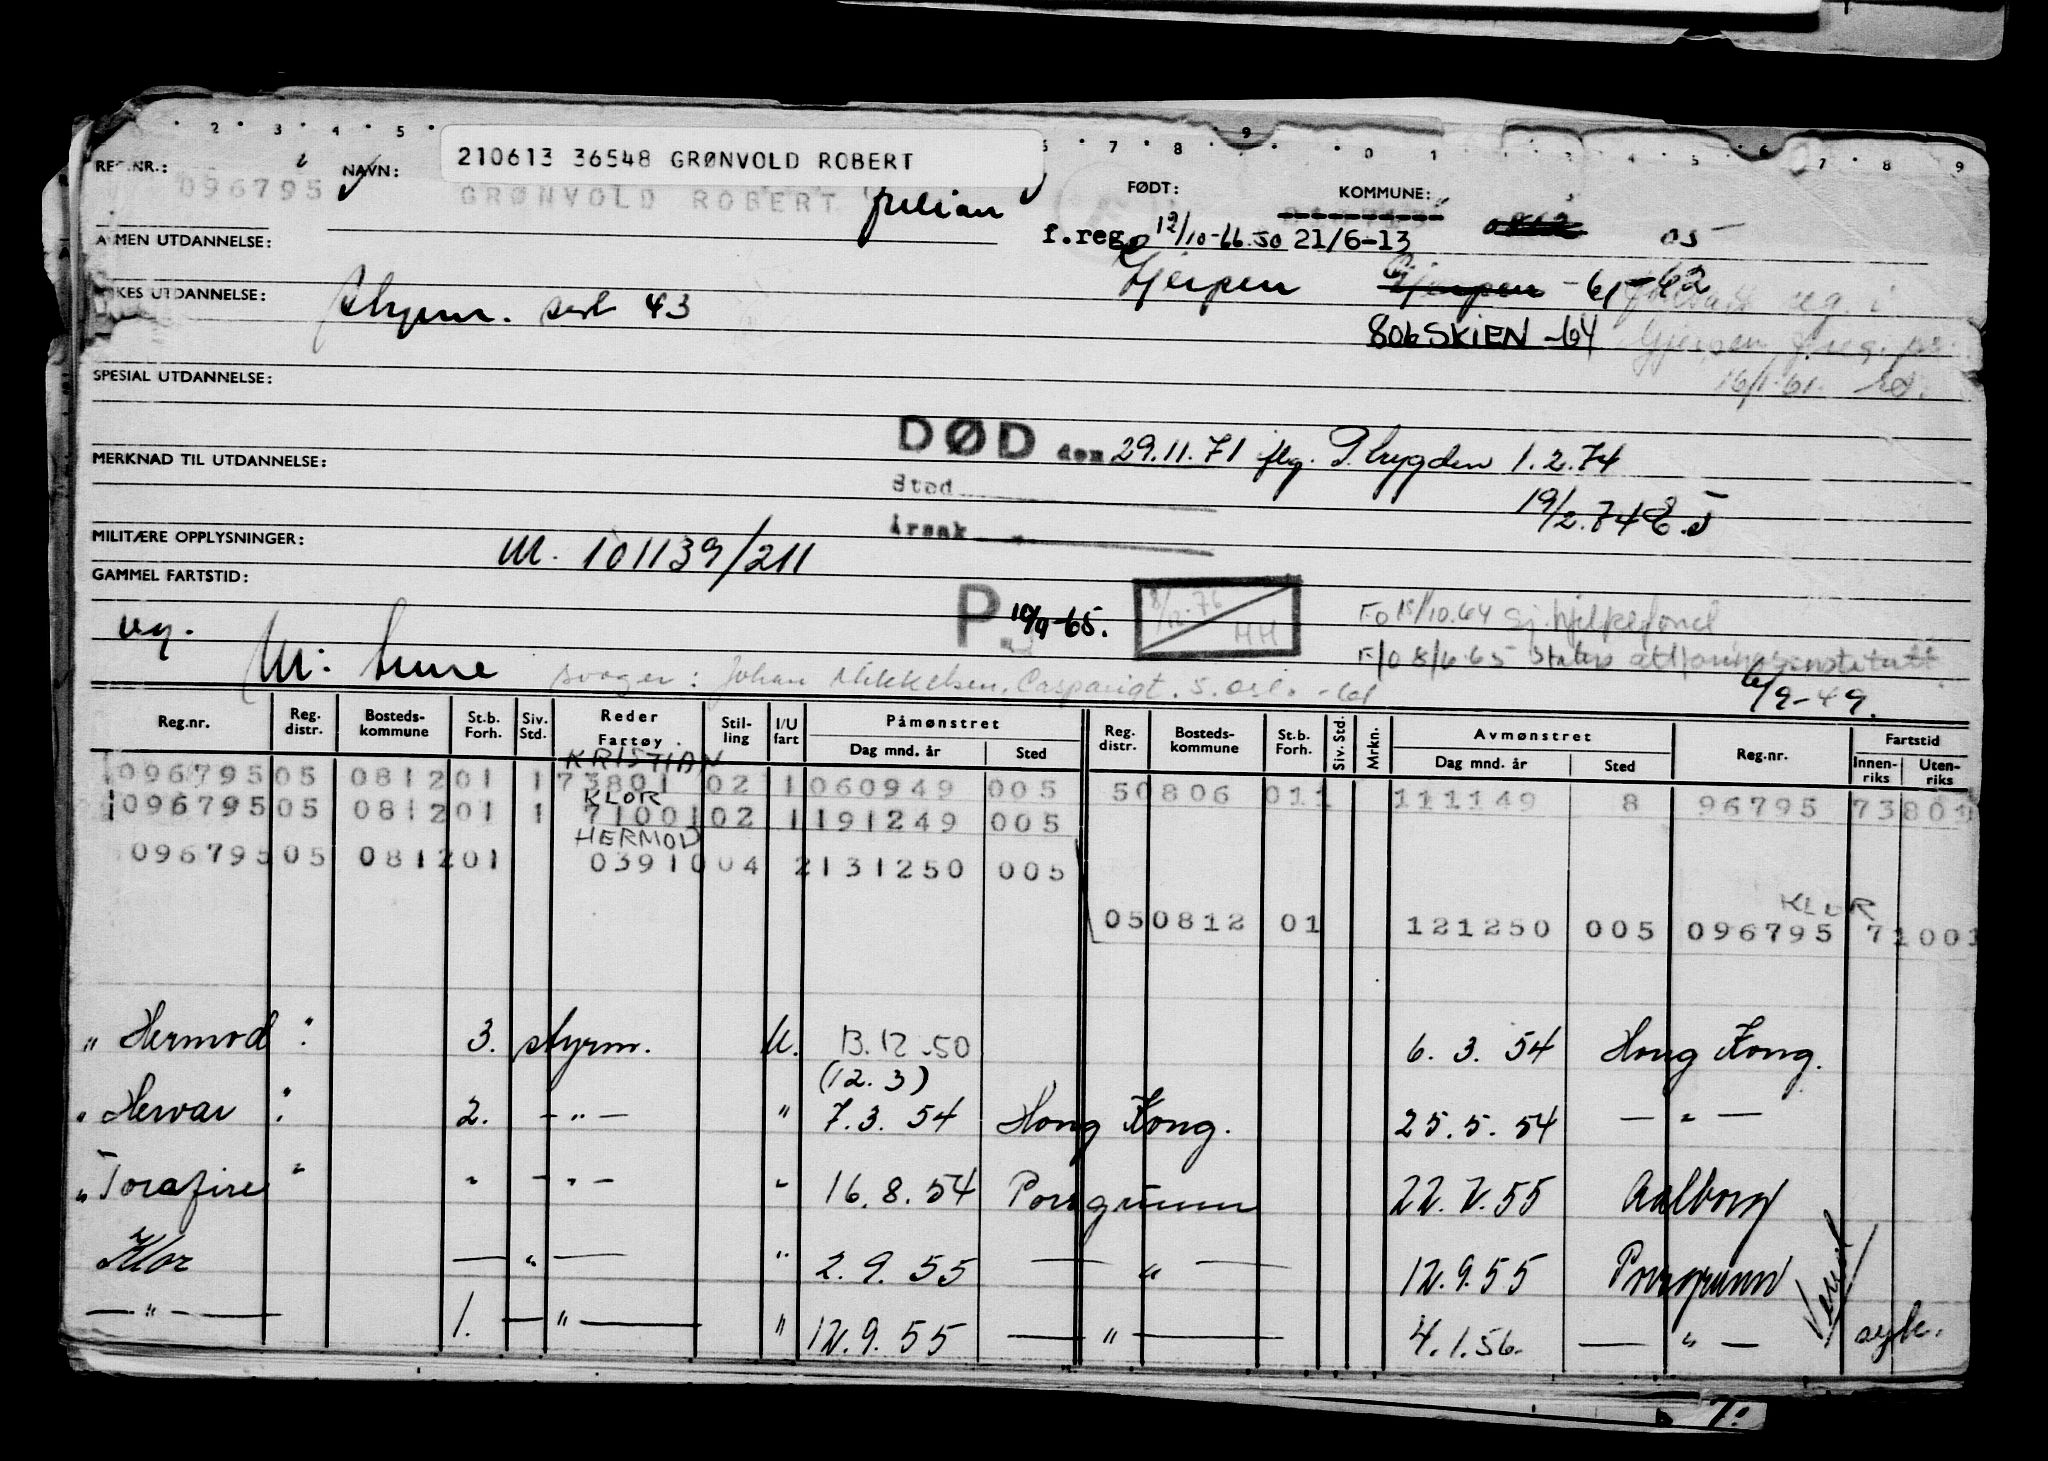 2 3 4 5 7 8 9 0 1 3 4 5 6 7 8 9
210613 36548 GRØNVOLD ROBERT
REG.NR.: NAVN: FØDT: KOMMUNE:
096795 GRØNVOLD ROBERT Julian
f.reg. 12/10-66.50 21/6-13 05
ALMEN UTDANNELSE:
Gjerpen Gjerpen - 61-62
YRKES UTDANNELSE: Styrm. sert 43
reg. i
806 SKIEN -64 Gjerpen f.reg. pr.
16/1-61.
SPESIAL UTDANNELSE:
DØD den 29.11.71 flg. P. trygden 1.2.74
MERKNAD TIL UTDANNELSE:
Sted
19/2.74
Årsak
MILITÆRE OPPLYSNINGER: M. 101139/211
GAMMEL FARTSTID:
P. 10/9-65. 8/12-76 HH
Fo 15/10.64 Sj. hjelpefond
ug.
F/O 8/6-65 Statens attføringsinstitutt
M: Anne svoger: Johan Mikkelsen, Caspárigt. 5. Osl. -61
6/9-49.
Reg.nr. Reg. distr. Bosteds-kommune St.b. Forh. Siv. Std. Reder Fartøy Stil-ling I/U fart Påmønstret Dag mnd. år Sted Reg. distr. Bosteds-kommune St.b. Forh. Siv. Std. Mrkn. Avmønstret Dag mnd. år Sted Reg.nr. Fartstid Innen-riks Uten-riks
KRISTIAN
096795 05 0812 01 1 73801 02 1 060949 005 50806 011 111149 8 96795 73801
KLOR
096795 05 0812 01 1 71001 02 1 191249 005
HERMOD
096795 05 0812 01 03910 04 2 131250 005
KLOR
050812 01 121250 005 096795 71001
" Hermod : 3. styrm. U. 13.12.50 6. 3. 54 Hong Kong.
(12.3)
" Hervar : 2. - " - " 7.3. 54 Hong Kong. 25.5. 54 — " —
" Torafire " " - " - " 16.8. 54 Porsgrunn 22.7.55 Aalborg
Klor — " — " 2.9. 55 — " — 12.9.55 Porsgrunn
— " — 1. — " — " 12.9.55 — " — 4.1.56. — " — syk.
7.